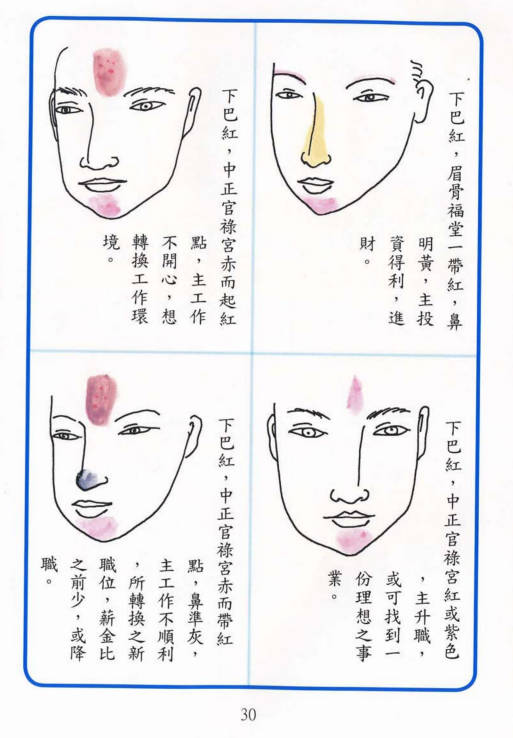 下巴紅，眉骨福堂一帶紅，鼻
明黃，主投
資得利，進
財。
下巴紅，中正官祿宮赤而起紅
點，主工作
不開心，想
轉換工作環
境。
下巴紅，中正官祿宮紅或紫色
，主升職，
或可找到一
份理想之事
業。
下巴紅，中正官祿宮赤而帶紅
點，鼻準灰，
主工作不順利
，所轉換之新
職位，薪金比
之前少，或降
職。
30